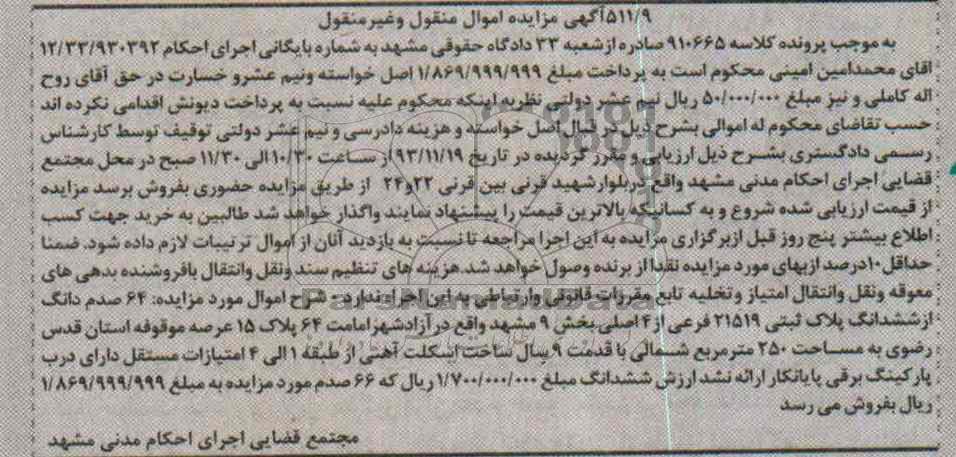 ۵۱۱/۹آگهی مزایده اموال منقول وغیرمنقول
به موجب پرونده کلاسه ۹۱۰۶۶۵ صادره از شعبه ۳۳ دادگاه حقوقی مشهد به شماره بایگانی اجرای احکام ۱۲/۳۳/۹۳۰۳۹۲
اقای محمدامین امینی محکوم است به پرداخت مبلغ ۱/۸۶۹/۹۹۹/۹۹۹ اصل خواسته ونیم عشرو خسارت در حق آقای روح
اله کاملی و نیز مبلغ ۵۰/۰۰۰/۰۰۰ ریال نیم عشر دولتی نظربه اینکه محکوم علیه نسبت به پرداخت دیونش اقدامی نکرده اند
حسب تقاضای محکوم له اموالی بشرح ذیل در قبال اصل خواسته و هزینه دادرسی و نیم عشر دولتی توقیف توسط کارشناس
رسمی دادگستری بشرح ذیل ارزیابی و مقرر گردیده در تاریخ ۹۳/۱۱/۱۹ از ساعت ۱۰/۳۰ الی ۱۱/۳۰ صبح در محل مجتمع
قضایی اجرای احکام مدنی مشهد واقع دربلوارشهید قرنی بین قرنی ۲۲و۲۴ از طریق مزایده حضوری بفروش برسد مزایده
از قیمت ارزیابی شده شروع و به کسانیکه بالاترین قیمت را پیشنهاد نمایند واگذار خواهد شد طالبین به خرید جهت کسب
اطلاع بیشتر پنج روز قبل ازبرگزاری مزایده به این اجرا مراجعه تا نسبت به بازدید آنان از اموال ترتیبات لازم داده شود. ضمنا
حداقل۱۰درصد ازبهای مورد مزایده نقدا از برنده وصول خواهد شد.هزینه های تنظیم سند ونقل وانتقال بافروشنده بدهی های
معوقه ونقل وانتقال امتیاز وتخلیه تابع مقررات قانونی وارتباطی به این اجرا ندارد- شرح اموال مورد مزایده: ۶۴ صدم دانگ
ازششدانگ پلاک ثبتی ۲۱۵۱۹ فرعی از۴ اصلی بخش ۹ مشهد واقع درآزادشهر امامت ۶۴ پلاک ۱۵ عرصه موقوفه استان قدس
رضوی به مساحت ۲۵۰ مترمربع شمالی با قدمت ۹ سال ساخت اسکلت آهنی از طبقه ۱ الی ۴ امتیازات مستقل دارای درب
پارکینگ برقی پایانکار ارائه نشد ارزش ششدانگ مبلغ ۱/۷۰۰/۰۰۰/۰۰۰ ریال که ۶۶ صدم مورد مزایده به مبلغ ۱/۸۶۹/۹۹۹/۹۹۹
ریال بفروش می رسد
مجتمع قضایی اجرای احکام مدنی مشهد